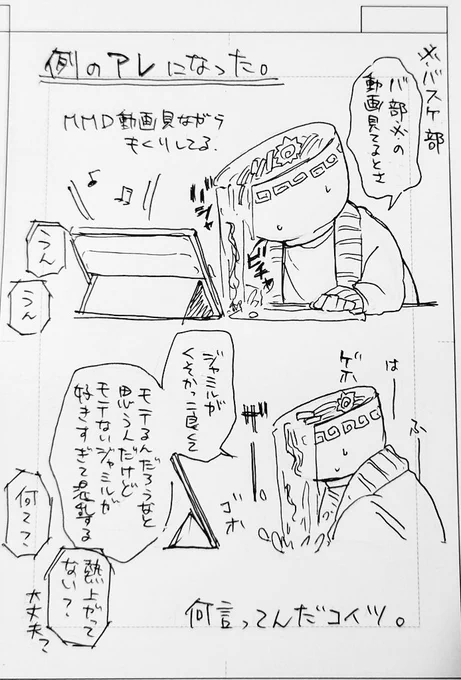 例のアレになった。
※バスケ部
バ部※の
動画見てるとさ
MMD動画見ながら
もぐりしてる.
うん
うん
ジャ
ビチャ
ゲホ
はー
ふー
ゴホ
ジャミルが
くそかっこ良くて
モテるんだろうなと
思うんだけど
モテないジャミルが
好きすぎて混乱する
何て？
熱上がって
ない？
大丈夫？
何言ってんだコイツ。